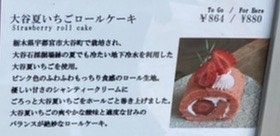 大谷夏いちごロールケーキ
Strawberry roll cake
To Go / For Here
¥864 / ¥880
栃木県宇都宮市大谷町で栽培され、
大谷石採掘場跡の夏でも冷たい地下冷水を利用した
大谷夏いちごを使用。
ピンク色のふわふわもっちり食感のロール生地。
優しい甘さのシャンティークリームに
ごろっと大谷夏いちごをホールごと巻き上げました。
大谷夏いちごの爽やかな酸味と適度な甘みの
バランスが絶妙なロールケーキ。